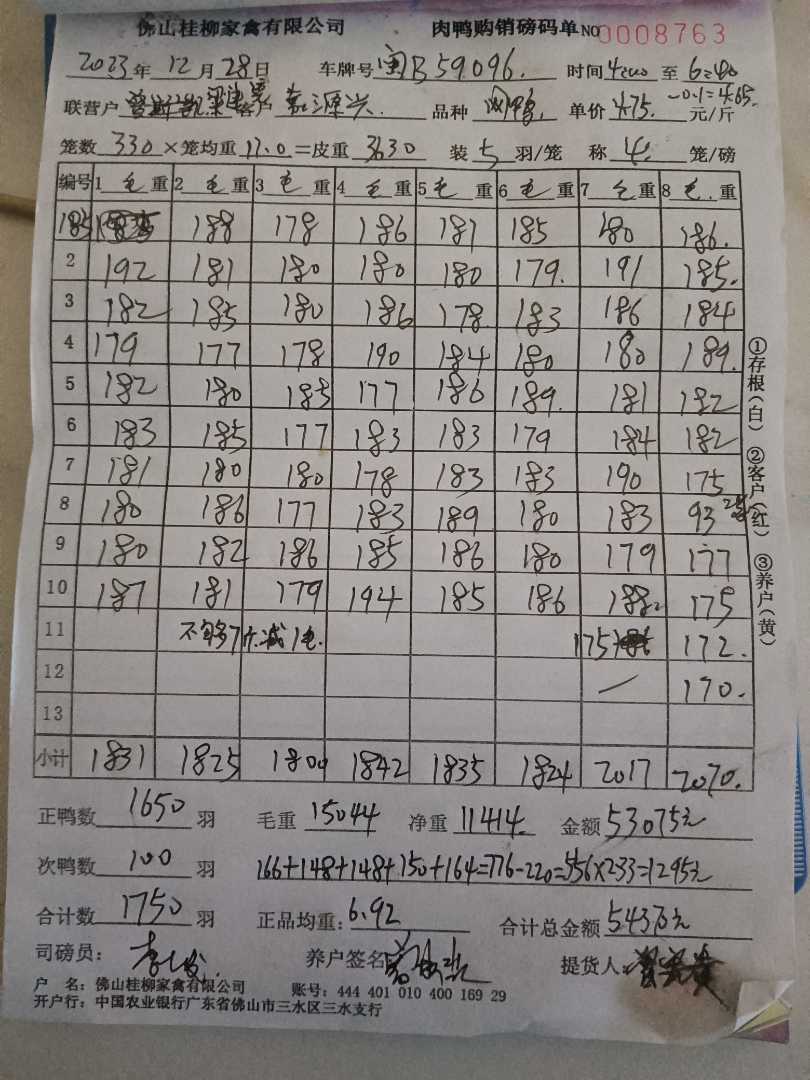 佛山桂柳家禽有限公司 肉鸭购销磅码单 NO 0008763
2023年 12月 28日 车牌号 闽B59096. 时间 4:00 至 6:40
联营户 客户 品种 单价 4.75. -0.1=4.65. 元/斤
笼数 330 ×笼均重 11.0 =皮重 3630 装 5 羽/笼 称 4. 笼/磅
编号 1 毛重 2 毛重 3 毛重 4 毛重 5 毛重 6 毛重 7 毛重 8 毛重
185 188 178 186 181 185 180 186.
2 192 181 180 180 180 179. 191 185.
3 182 185 180 186 178 183 186 184
4 179 177 178 190 184 180 180 189.
5 182 180 185 177 186 189. 181 182
6 183 185 177 183 183 179 184 182
7 181 180 180 178 183 183 190 175
8 180 186 177 183 189 180 183 93
9 180 182 186 185 186 180 179 177
10 187 181 179 194 185 186 188 175
11 不够7斤减1毛. 175 172.
12 — 170.
13
小计 1831 1825 1800 1842 1835 1824 2017 2070.
正鸭数 1650 羽 毛重 15044 净重 11414. 金额 53075元
次鸭数 100 羽 166+148+148+150+164=776-220=556×233=1295元
合计数 1750 羽 正品均重: 6.92 合计总金额 54370元
司磅员: 养户签名 提货人:
户 名: 佛山桂柳家禽有限公司 账号: 444 401 010 400 169 29
开户行: 中国农业银行广东省佛山市三水区三水支行
①存根(白) ②客户(红) ③养户(黄)